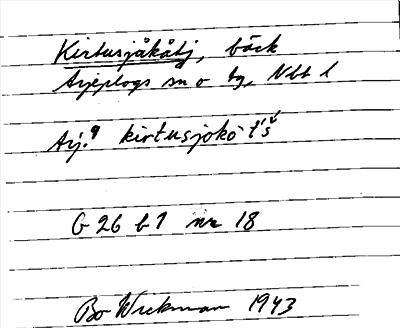 Kirtusjåkåtj, bäck
Arjeplogs sn o tg, Nbt l
Arj. 9 kirtusjokɔ t́š́
G 26 b 1 nr 18
Bo Wickman 1943